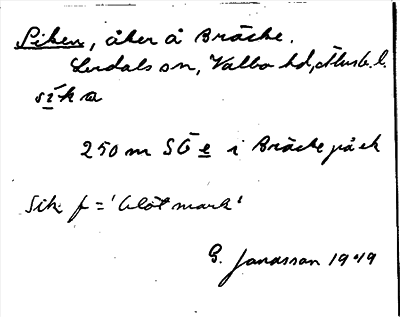 Siken, åker å Bräcke.
Lerdals sn, Valbo hd, Älvsb. l.
sí̱k a
250 m SÖ e i Bräcke på ek
Sik f = 'blöt mark'
G. Jonasson 1949